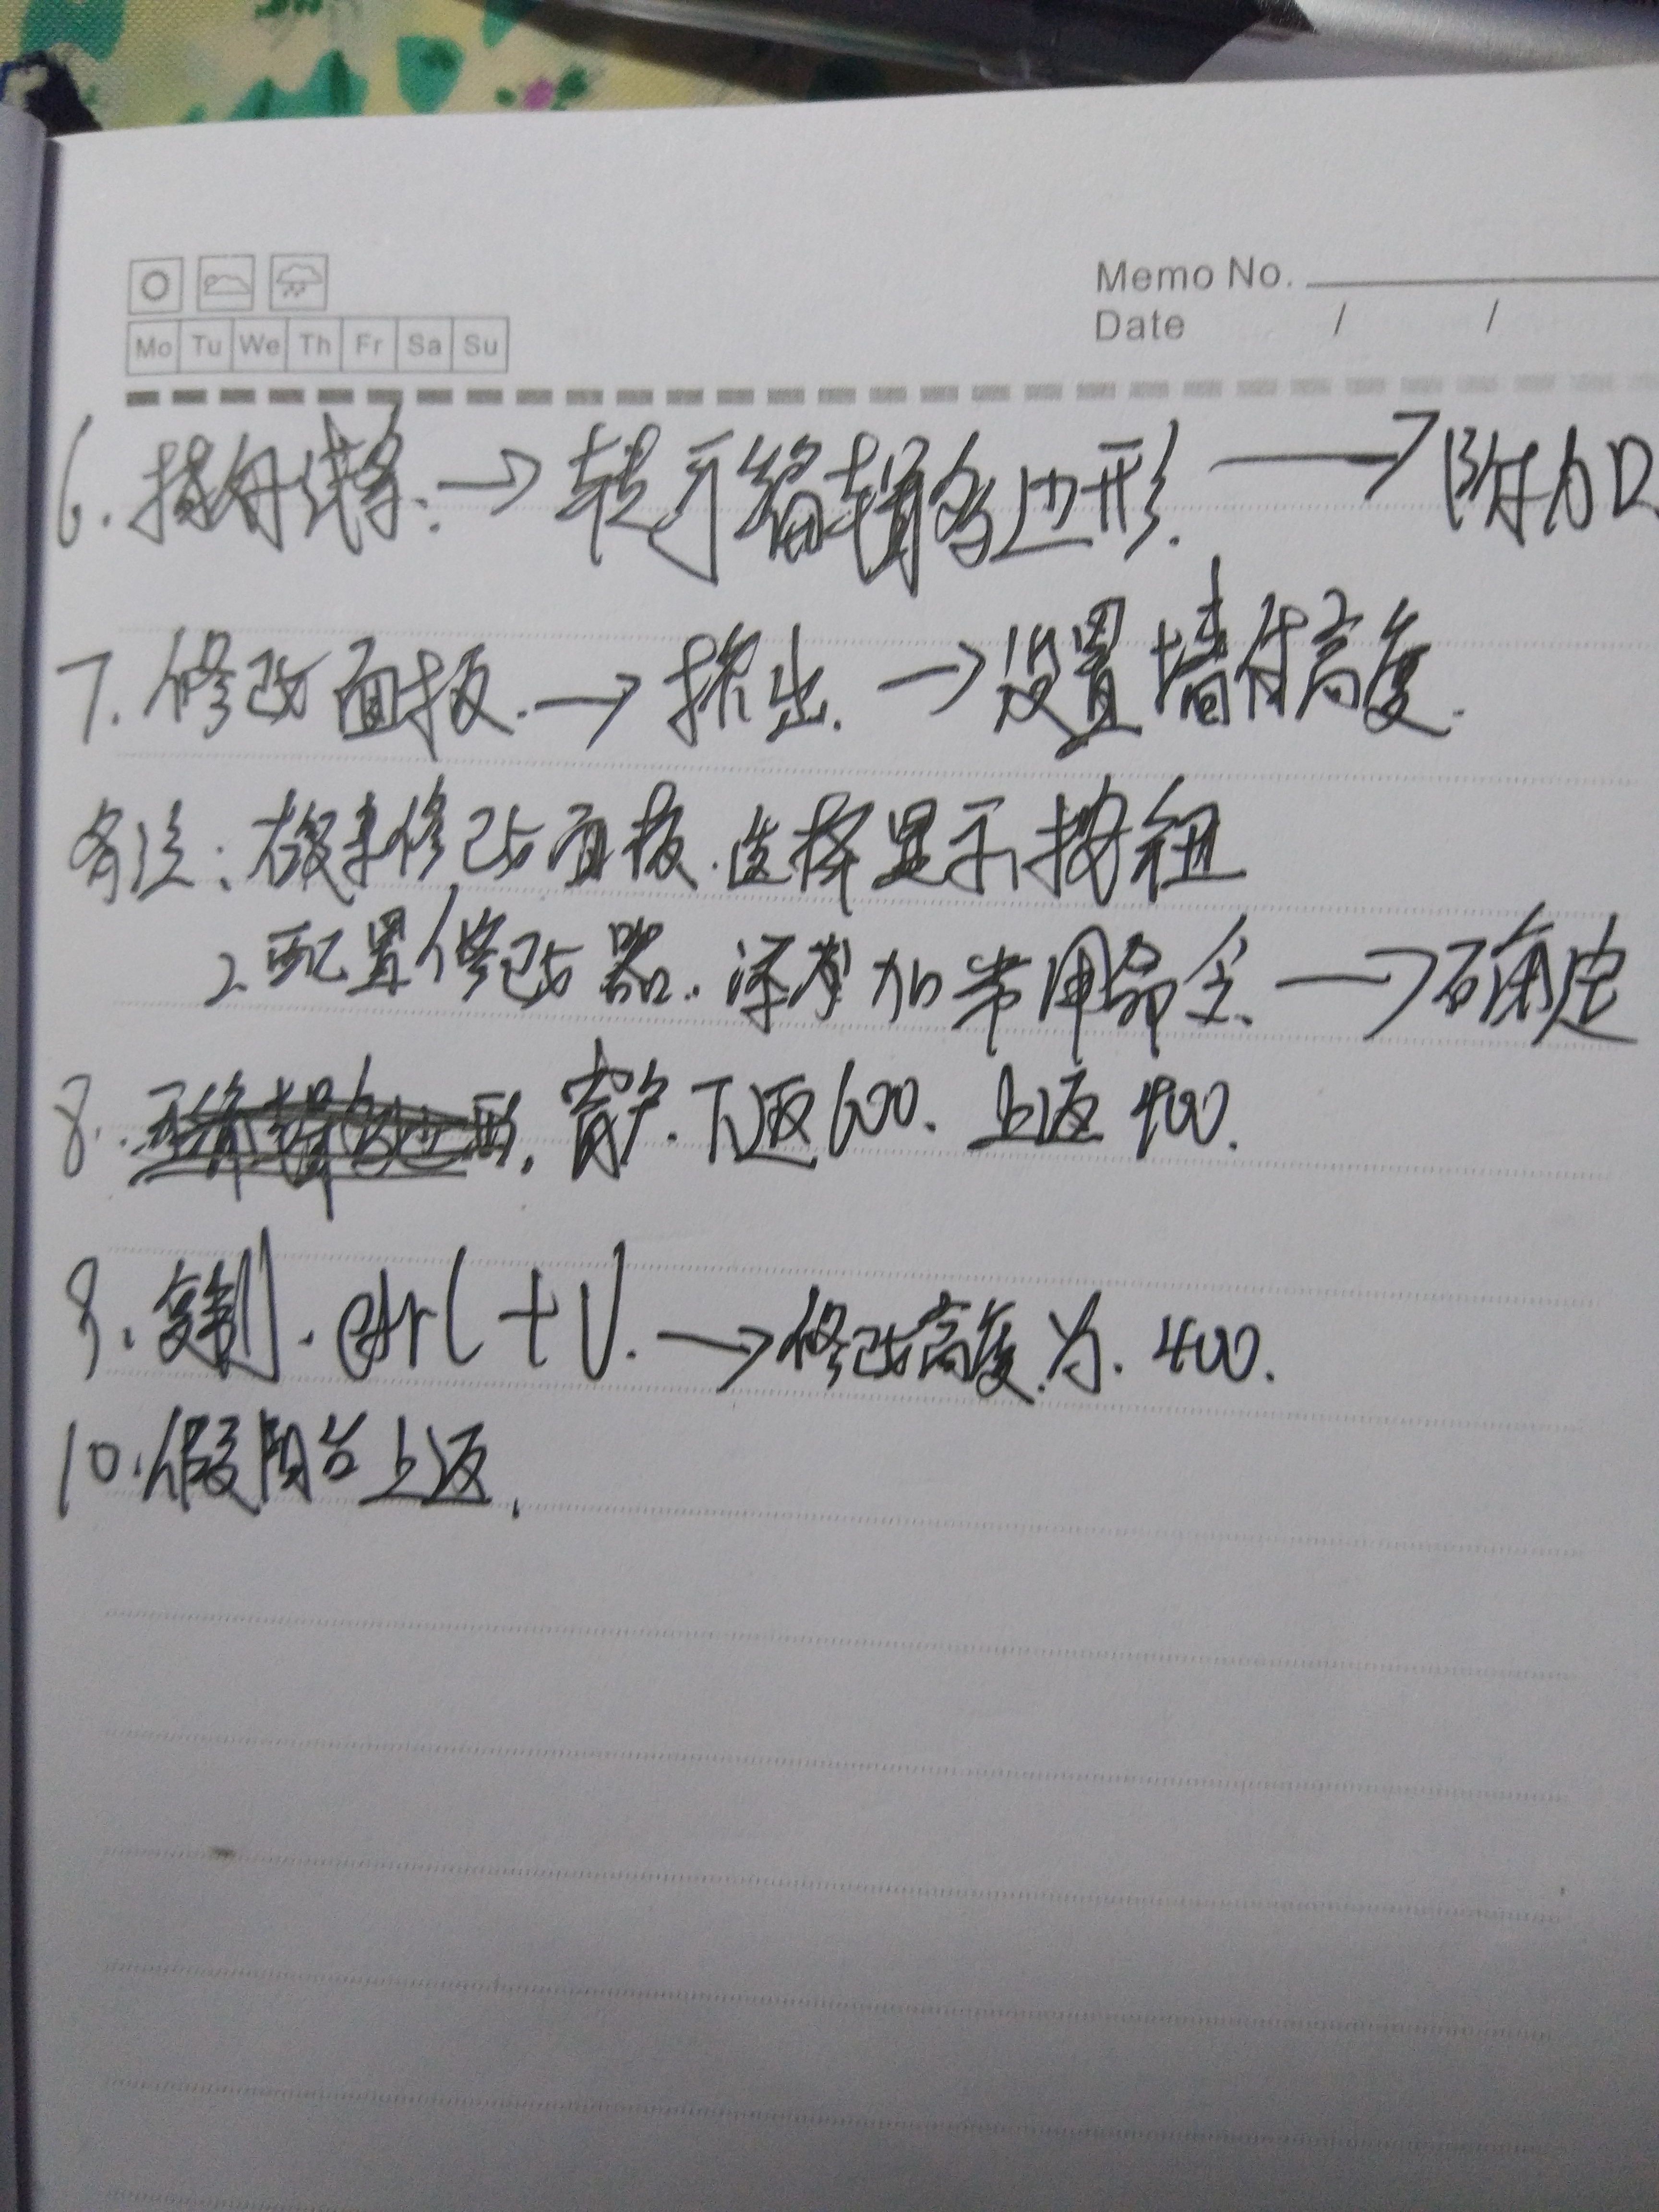 Memo No.
Mo Tu We Th Fr Sa Su
Date / /
6. 描线 → 转可编辑多边形. → 附加
7. 修改面板. → 挤出. → 设置墙体高度.
备注: 修改面板. 选择显示按钮
2. 配置修改器. 添加常用命令. → 确定
8. 窗户. 下返600. 上返400.
9. 复制. ctrl + V. → 修改高度为. 400.
10. 假阳台上返.